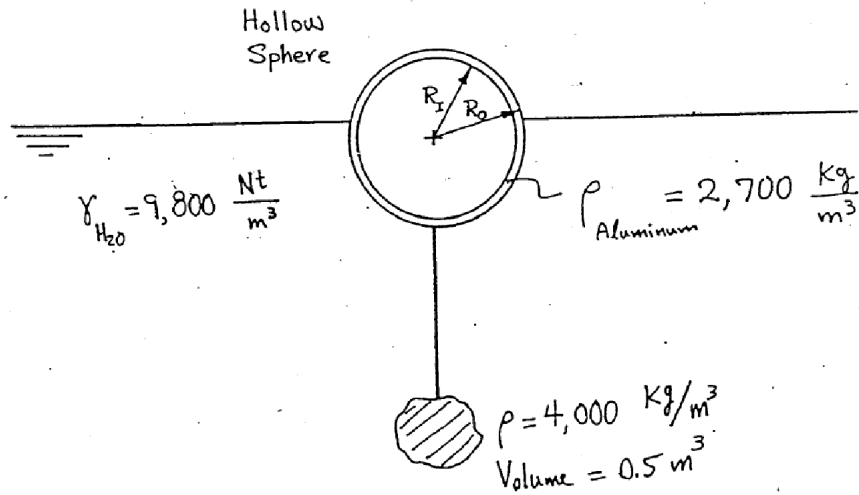 Hollow
Sphere
R_I
R_O
γ_H₂O = 9,800 Nt/m³
ρ_Aluminum = 2,700 Kg/m³
ρ = 4,000 Kg/m³
Volume = 0.5 m³